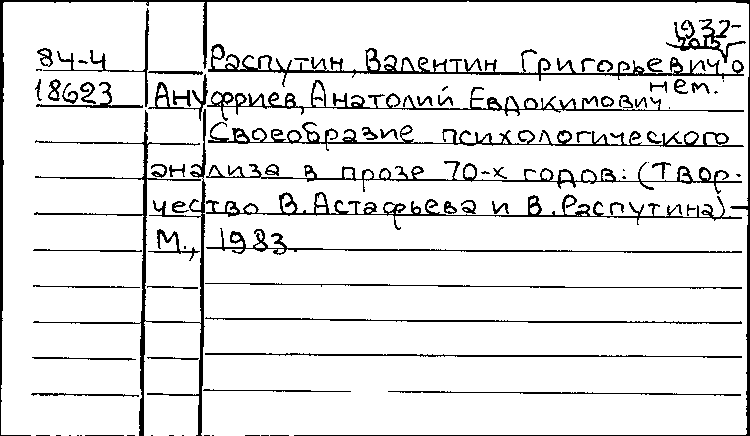 1932-
2015
84-4 Распутин, Валентин Григорьевич, о
нем.
18623 Ануфриев, Анатолий Евдокимович.
Своеобразие психологического
анализа в прозе 70-х годов: (Твор-
чество В. Астафьева и В. Распутина) -
М., 1983.